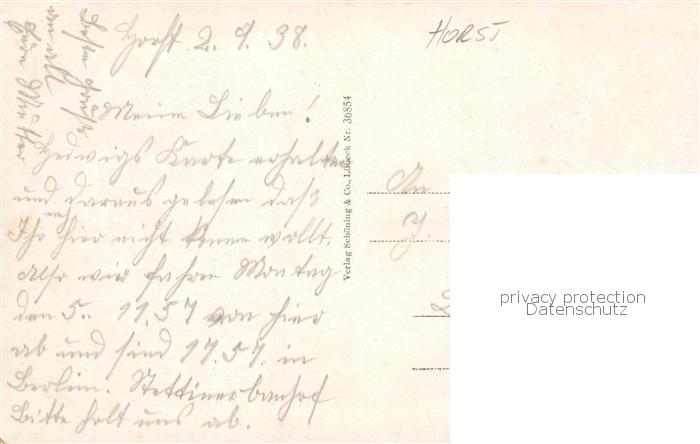 Horst 2. 9. 38.
Meine Lieben!
Hedwigs Karte erhalten
und daraus gelesen daß
Ihr nach hier nicht kommen wollt.
Also wir fahren Montag
den 5.. 11,57 von hier
ab und sind 17.57. in
Berlin. Stettinerbahnhof
Bitte holt uns ab.
Beste Grüße
an alle
Eure Mutter
Verlag Schöning & Co., Lübeck Nr. 36854
HORST
An
privacy protection
Datenschutz